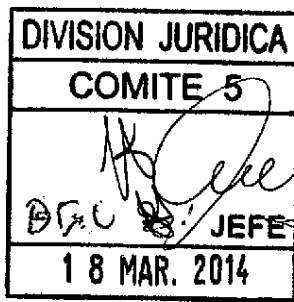 DIVISION JURIDICA
COMITE 5
JEFE
18 MAR. 2014